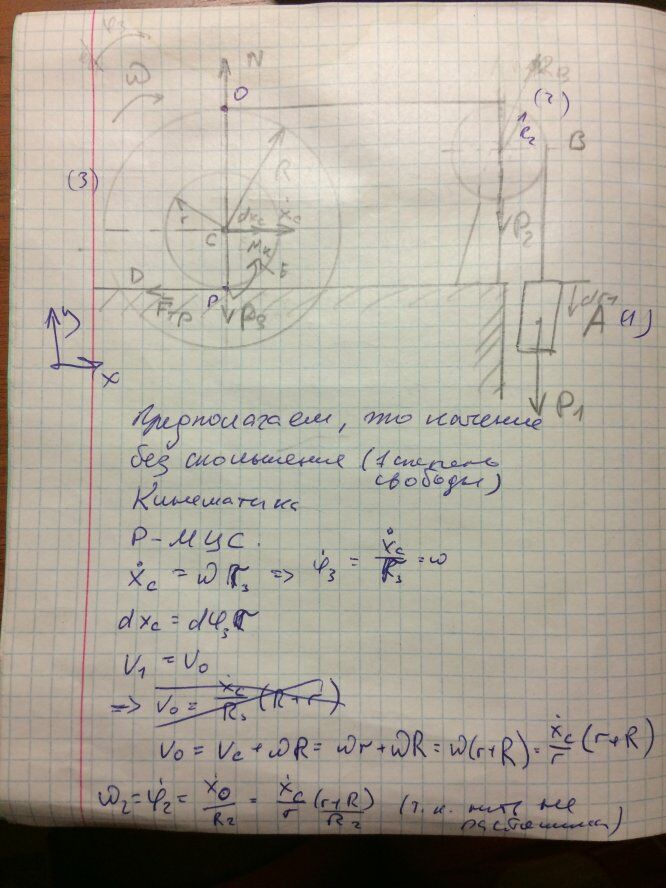 ω
N
O
R_B
(2)
R_2
B
(3)
R
r
dx_c
ẋ_c
C
M_k
E
P_2
D
P
F_тр
P_3
A (1)
y
x
P_1
Предполагаем, что качение
без скольжения (1 степень
свободы)
Кинематика
P – МЦС.
ẋ_c = ω r_3 => φ̇_3 = ẋ_c / r_3 = ω
dx_c = dφ_3 r
V_1 = V_0
=> V_0 = ẋ_c / R_3 (R + r)
V_0 = V_c + ωR = ωr + ωR = ω(r+R) = ẋ_c / r (r+R)
ω_2 = φ̇_2 = ẋ_0 / R_2 = ẋ_c / r (r+R) / R_2 (т.к. нить не
растяжима)